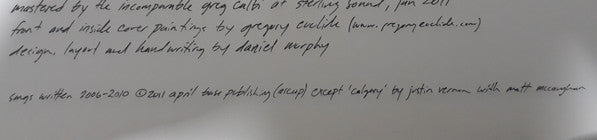 mastered by the incomparable greg calbi at sterling sound, jan 2011
front and inside cover paintings by gregory euclide (www.gregoryeuclide.com)
design, layout and handwriting by daniel murphy
songs written 2006-2010 ©2011 april base publishing (ascap) except 'calgary' by justin vernon with matt mccaughan